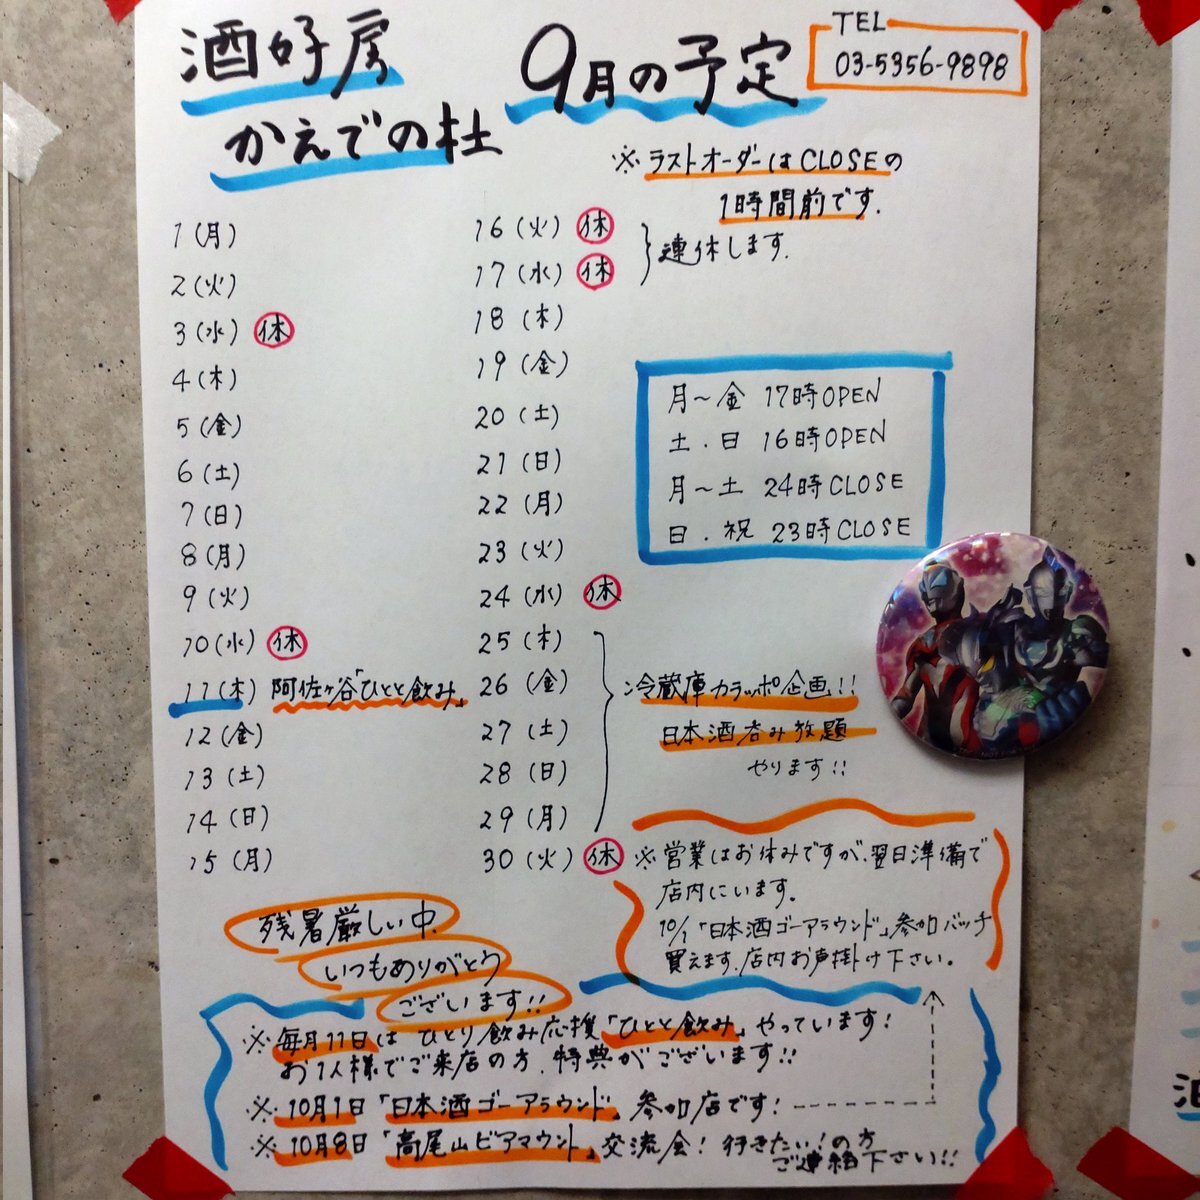 酒好房
かえでの杜
9月の予定
TEL
03-5356-9898
※ラストオーダーはCLOSEの
1時間前です.
1(月)
2(火)
3(水) 休
4(木)
5(金)
6(土)
7(日)
8(月)
9(火)
10(水) 休
11(木) 阿佐ヶ谷「ひとと飲み」
12(金)
13(土)
14(日)
15(月)
16(火) 休
17(水) 休
連休します.
18(木)
19(金)
20(土)
21(日)
22(月)
23(火)
24(水) 休
25(木)
26(金)
27(土)
28(日)
29(月)
30(火) 休
月〜金 17時OPEN
土.日 16時OPEN
月〜土 24時CLOSE
日.祝 23時CLOSE
冷蔵庫カラッポ企画!!
日本酒呑み放題
やります!!
※営業はお休みですが、翌日準備で
店内にいます。
10/1「日本酒ゴーアラウンド」参加バッチ
買えます、店内お声掛け下さい。
残暑厳しい中、
いつもありがとう
ございます!!
※毎月11日はひとり飲み応援「ひとと飲み」やっています!
お1人様でご来店の方、特典がございます!!
※10月1日「日本酒ゴーアラウンド」参加店です!
※10月8日「高尾山ビアマウント」交流会!行きたい!の方
ご連絡下さい!!